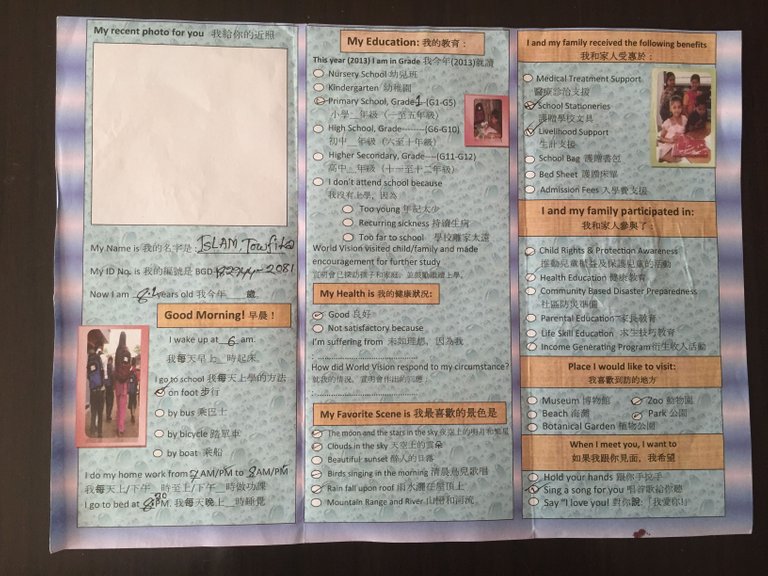 My recent photo for you 我給你的近照
My Name is 我的名字是: ISLAM, Towfika
My ID No. is 我的編號是 BGD
Now I am years old 我今年 歲
Good Morning! 早晨!
I wake up at 6 am.
我每天早上 時起床
I go to school 我每天上學的方法
on foot 步行
by bus 乘巴士
by bicycle 踏單車
by boat 乘船
I do my home work from 7 AM/PM to 8 AM/PM
我每天上/下午 時至上/下午 時做功課
I go to bed at PM. 我每天晚上 時睡覺
My Education: 我的教育:
This year (2013) I am in Grade 我今年(2013)就讀
Nursery School 幼兒班
Kindergarten 幼稚園
Primary School, Grade 1 (G1-G5)
小學 年級 (一至五年級)
High School, Grade--------(G6-G10)
初中 年級 (六至十年級)
Higher Secondary, Grade----(G11-G12)
高中 年級 (十一至十二年級)
I don't attend school because
我沒有上學，因為
Too young 年紀太少
Recurring sickness 持續生病
Too far to school 學校離家太遠
World Vision visited child/family and made
encouragement for further study
宣明會已探訪孩子和家庭，並鼓勵繼續上學。
My Health is 我的健康狀況:
Good 良好
Not satisfactory because
I'm suffering from 未如理想，因為我
How did World Vision respond to my circumstance?
就我的情況，宣明會作出的回應:
My Favorite Scene is 我最喜歡的景色是
The moon and the stars in the sky 夜空上的明月和繁星
Clouds in the sky 天空上的雲朵
Beautiful sunset 醉人的日落
Birds singing in the morning 清晨鳥兒歌唱
Rain fall upon roof 雨水灑在屋頂上
Mountain Range and River 山巒和河流
I and my family received the following benefits
我和家人受惠於:
Medical Treatment Support
醫療診治支援
School Stationeries
獲贈學校文具
Livelihood Support
生計支援
School Bag 獲贈書包
Bed Sheet 獲贈床單
Admission Fees 入學費支援
I and my family participated in:
我和家人參與了:
Child Rights & Protection Awareness
推動兒童權益及保護兒童的活動
Health Education 健康教育
Community Based Disaster Preparedness
社區防災準備
Parental Education 家長教育
Life Skill Education 求生技巧教育
Income Generating Program 衍生收入活動
Place I would like to visit:
我喜歡到訪的地方
Museum 博物館 Zoo 動物園
Beach 海灘 Park 公園
Botanical Garden 植物公園
When I meet you, I want to
如果我跟你見面，我希望
Hold your hands 跟你手拉手
Sing a song for you 唱首歌給你聽
Say "I love you! 對你說:「我愛你!」